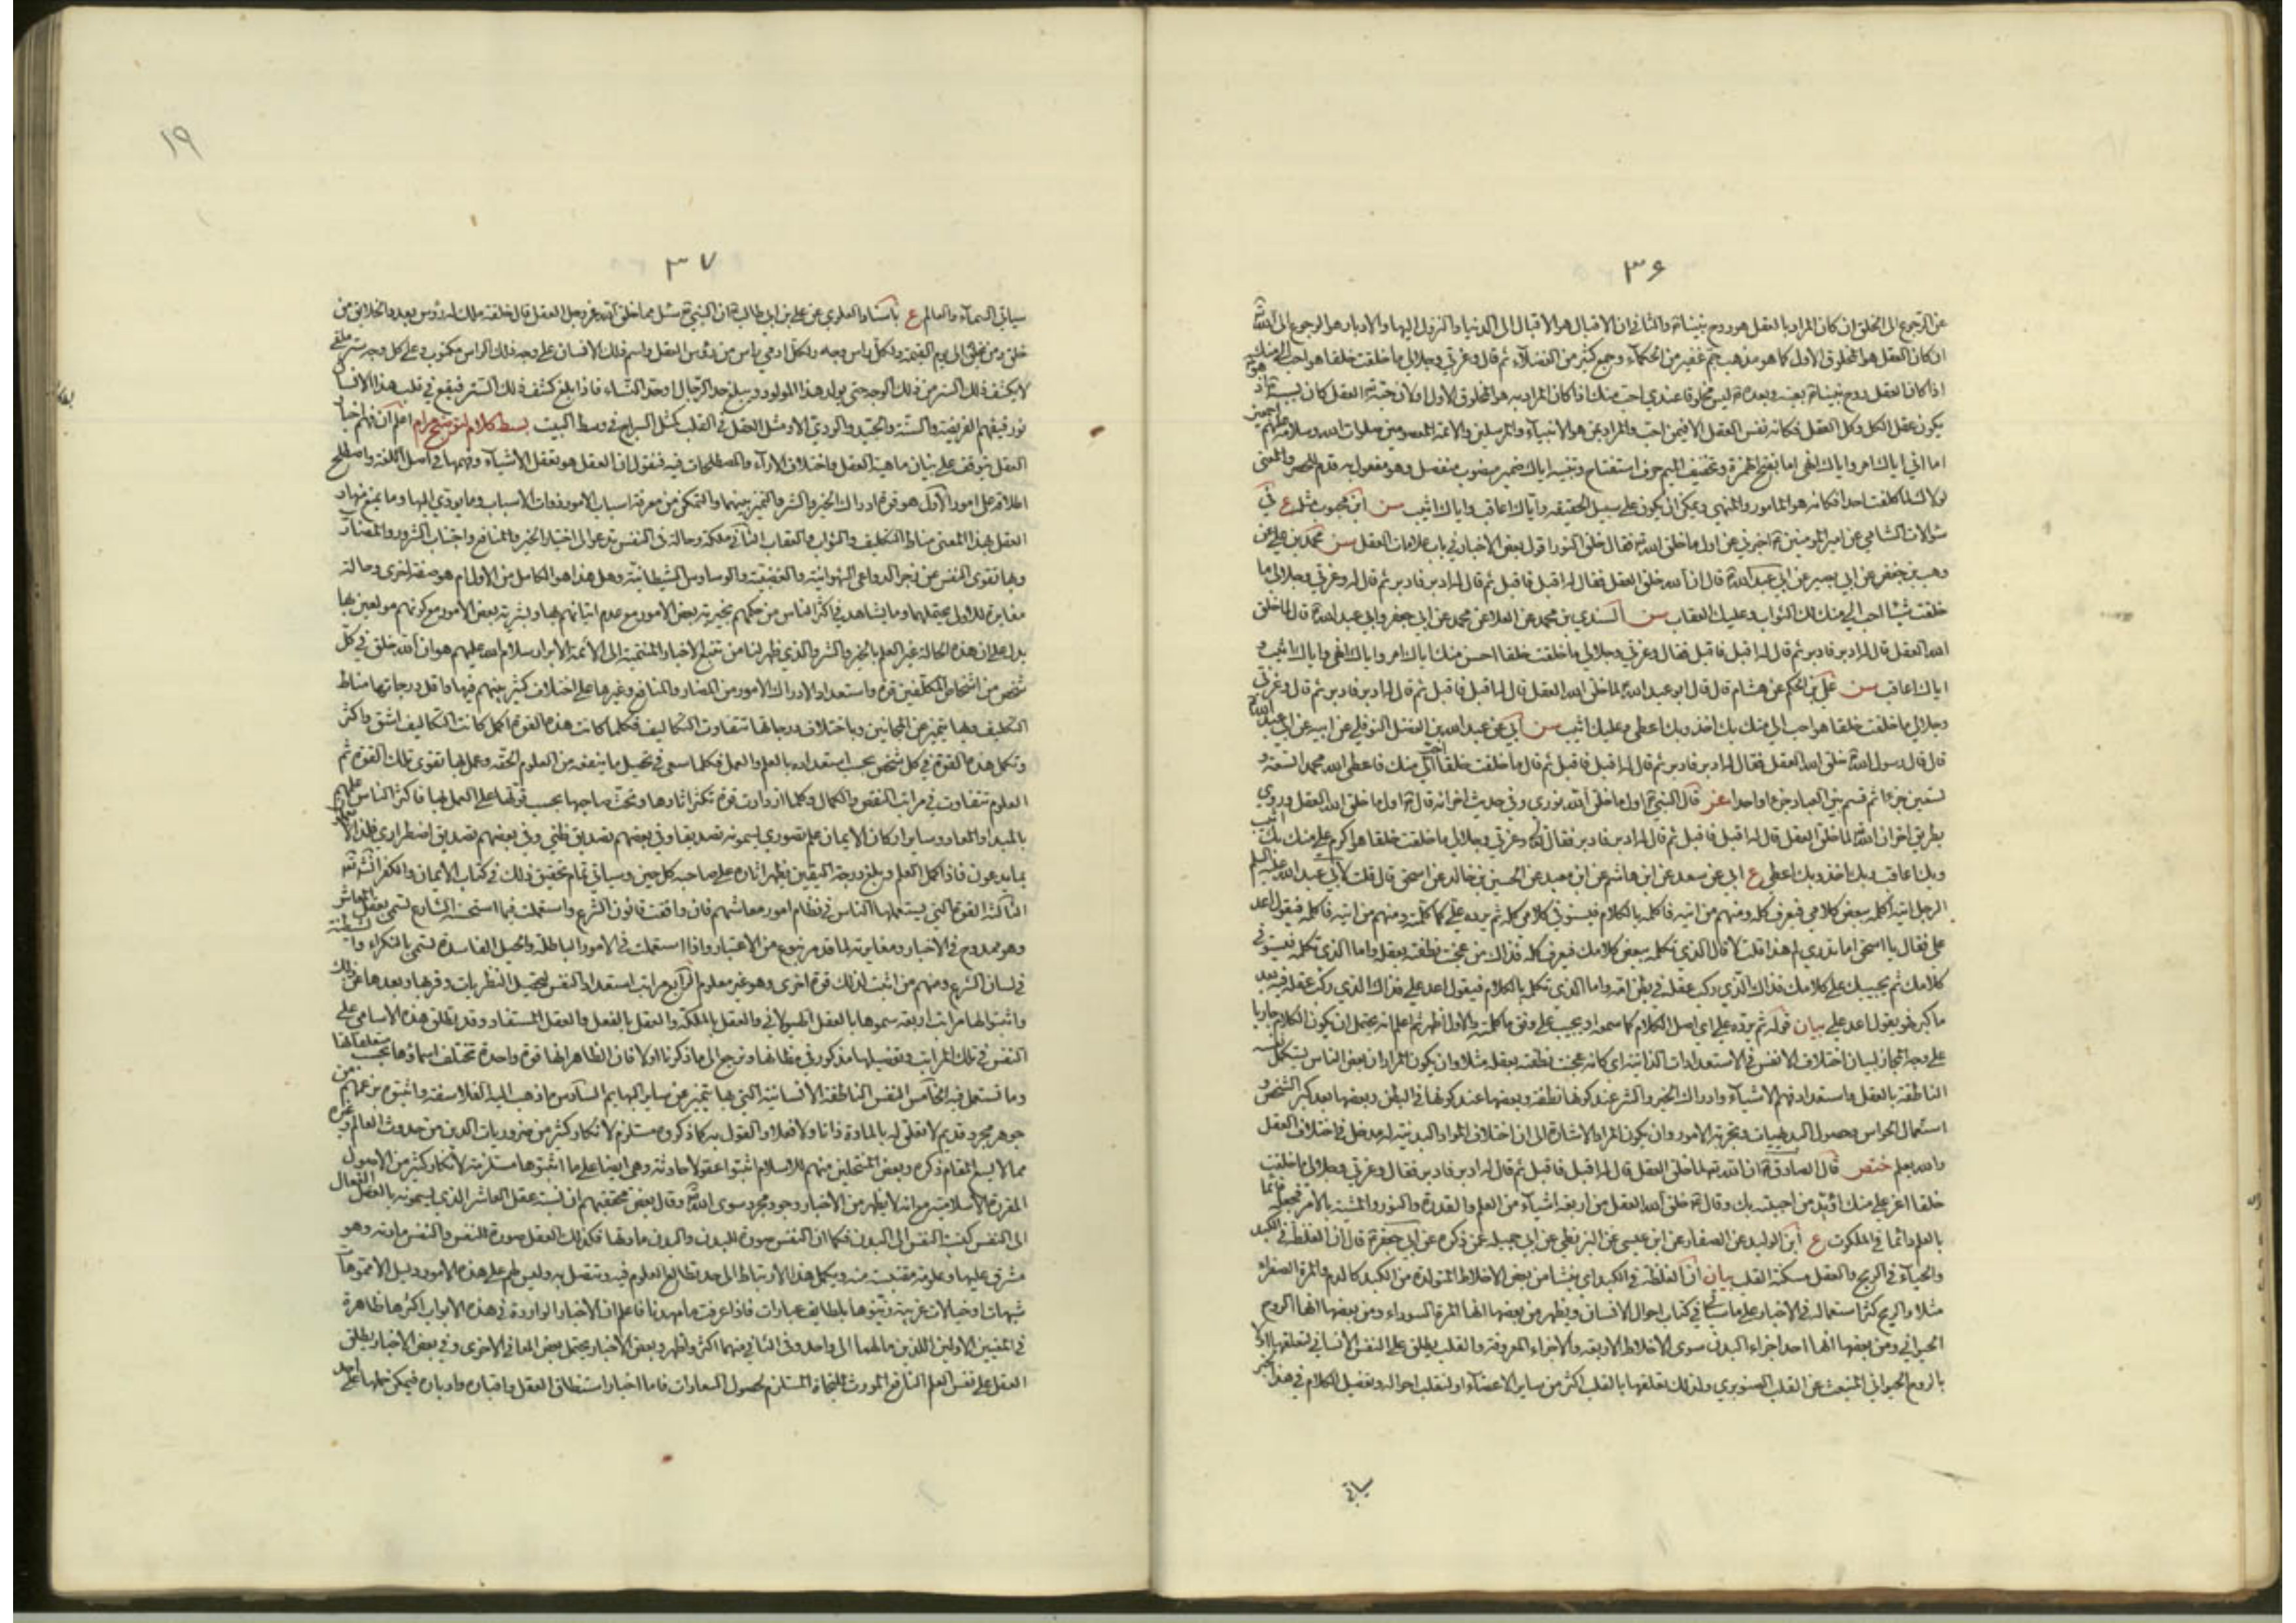 ٣۶
عن الرجوع الى الخلق ان كان المراد بالعقل هو روح نبينا والثاني ان الاقبال هو الاقبال الى الدنيا والنزول اليها والادبار هو الرجوع الى الله
ان كان العقل هو المخلوق الاول كما هو مذهب جم غفير من الحكماء وجمع كثير من الفضلاء ثم قال وعزتي وجلالي ما خلقت خلقا هو احب الي منك
يكون عقل الكل وكل العقل فكانه نفس العقل الا فيمن احب والمراد بمن هو الانبياء والمرسلين والائمة المعصومين صلوات الله وسلامه عليهم اجمعين
اما اني اياك امر واياك انهى اما بفتح الهمزة وتخفيف الميم حرف استفتاح وتنبيه اياك ضمير منصوب منفصل وهو مفعول به قدم للحصر والمعنى
لولاك لما كلفت احدا فكانه هو المامور والمنهي ويمكن ان يكون على سبيل الحقيقة واياك اعاقب واياك اثيب سن ابن محبوب مثله ع في
سؤالات الشامي عن امير المؤمنين اخبرني عن اول ما خلق الله فقال خلق النور اقول بعض الاخبار في باب علامات العقل سن محمد بن علي عن
وهب بن حفص عن ابي بصير عن ابي عبد الله قال ان الله خلق العقل فقال له اقبل فاقبل ثم قال له ادبر فادبر ثم قال له وعزتي وجلالي ما
خلقت شيئا احب الي منك لك الثواب وعليك العقاب سن السندي بن محمد عن العلا عن محمد عن ابي جعفر وابي عبد الله قال لما خلق
الله العقل قال له ادبر فادبر ثم قال له اقبل فاقبل فقال وعزتي وجلالي ما خلقت خلقا احسن منك اياك امر واياك انهى واياك اثيب و
اياك اعاقب سن علي بن الحكم عن هشام قال قال ابو عبد الله لما خلق الله العقل قال له اقبل فاقبل ثم قال له ادبر فادبر ثم قال وعزتي
وجلالي ما خلقت خلقا هو احب الي منك بك اخذ وبك اعطي وعليك اثيب سن ابي عن عبد الله بن الفضل النوفلي عن ابيه عن ابي عبد الله
قال قال رسول الله خلق الله العقل فقال له ادبر فادبر ثم قال له اقبل فاقبل ثم قال ما خلقت خلقا احب الي منك فاعطى الله محمدا تسعة و
تسعين جزءا ثم قسم بين العباد جزءا واحدا غو قال النبي اول ما خلق الله نوري وفي حديث اخر انه قال اول ما خلق الله العقل وروي
بطريق اخر ان الله لما خلق العقل قال له اقبل فاقبل ثم قال له ادبر فادبر فقال وعزتي وجلالي ما خلقت خلقا هو اكرم علي منك بك اثيب
وبك اعاقب وبك اخذ وبك اعطي ع ابي عن سعد عن ابن هاشم عن ابن معبد عن الحسين بن خالد عن اسحق قال قلت لابي عبد الله عليه السلم
الرجل اتيه اكلمه ببعض كلامي فيعرف كله ومنهم من اتيه فاكلمه بالكلام فيستوفي كلامي كله ثم يرده علي كما كلمته ومنهم من اتيه فاكلمه فيقول اعد
علي فقال يا اسحق اما تدري لم هذا قلت لا قال الذي تكلمه ببعض كلامك فيعرف كله فذاك من عجنت نطفته بعقله واما الذي تكلمه فيستوفي
كلامك ثم يجيبك على كلامك فذاك الذي ركب عقله في بطن امه واما الذي تكلمه بالكلام فيقول اعد علي فذاك الذي ركب عقله فيه بعد
ما كبر فهو يقول اعد علي بيان قوله ثم يرده علي اي اصل الكلام كما سمعه او يجيب على وفق ما كلمته والاول اظهر ثم اعلم انه يحتمل ان يكون الكلام جاريا
على وجه المجاز لبيان اختلاف الانفس في الاستعدادات الذاتية اي كانه عجنت نطفته بعقله مثلا وان يكون المراد ان بعض الناس يستكمل نفسه
الناطقة بالعقل واستعداد فهم الاشياء وادراك الخير والشر عند كونها نطفة وبعضها عند كونها في البطن وبعضها بعد كبر الشخص و
استعمال الحواس وحصول البديهيات وتجربة الامور وان يكون المراد الاشارة الى ان اختلاف المواد البدنية له مدخل في اختلاف العقل
والله يعلم ختص قال الصادق ان الله لما خلق العقل قال له اقبل فاقبل ثم قال له ادبر فادبر فقال وعزتي وجلالي ما خلقت
خلقا اعز علي منك اؤيد من احببته بك وقال خلق الله العقل من اربعة اشياء من العلم والقدرة والنور والمشية بالامر فجعله قائما
بالعلم دائما في الملكوت ع ابن الوليد عن الصفار عن ابن عيسى عن البزنطي عن ابي جميلة عمن ذكره عن ابي جعفر قال ان الغلظة في الكبد
والحياء في الريح والعقل مسكنه القلب بيان ان الغلظة في الكبد اي ينشا من بعض الاخلاط المتولدة من الكبد كالدم والمرة الصفراء
مثلا والريح كثر استعماله في الاخبار على ما سياتي في كتاب احوال الانسان ويظهر من بعضها انها المرة السوداء ومن بعضها انها الروح
الحيواني ومن بعضها انها احد اجزاء البدن سوى الاخلاط الاربعة والاجزاء المعروفة والقلب يطلق على النفس الانساني لتعلقها اولا
بالروح الحيواني المنبعث عن القلب الصنوبري ولذلك تعلقها بالقلب اكثر من ساير الاعضاء او لتقلب احواله وتفصيل الكلام في هذا الخبر
سياتي
١٩
٣٧
سياتي السماء والعالم ع باسناد العلوي عن علي بن ابي طالب ان النبي سئل مما خلق الله عز وجل العقل قال خلقه ملك له رؤس بعدد الخلايق من
خلق ومن يخلق الى يوم القيمة ولكل راس وجه ولكل ادمي راس من رؤس العقل واسم ذلك الانسان على وجه ذلك الراس مكتوب وعلى كل وجه ستر ملقى
لا يكشف ذلك الستر من ذلك الوجه حتى يولد هذا المولود ويبلغ حد الرجال او حد النساء فاذا بلغ كشف ذلك الستر فيقع في قلب هذا الانسان
نور فيفهم الفريضة والسنة والجيد والردي الا ومثل العقل في القلب كمثل السراج في وسط البيت بسط كلام لتوضيح مرام اعلم ان فهم اخبار
العقل يتوقف على بيان ماهية العقل واختلاف الاراء والمصطلحات فيه فنقول ان العقل هو تعقل الاشياء وفهمها في اصل اللغة واصطلح
اطلاقه على امور الاول هو قوة ادراك الخير والشر والتميز بينهما والتمكن من معرفة اسباب الامور وذوات الاسباب وما يؤدي اليها وما يمنع منها و
العقل بهذا المعنى مناط التكليف والثواب والعقاب الثاني ملكة وحالة في النفس تدعو الى اختيار الخير والمنافع واجتناب الشرور والمضار
وبها تقوى النفس عن زجر الدواعي الشهوانية والغضبية والوساوس الشيطانية وهل هذا هو الكامل من الاول ام هو صفة اخرى وحالة
مغايرة للاول يحتملهما وما يشاهد في اكثر الناس من حكمهم بخيرية بعض الامور مع عدم اتيانهم بها وبشرية بعض الامور مع كونهم مولعين بها
يدل على ان هذه الحالة غير العلم بالخير والشر والذي ظهر لنا من تتبع الاخبار المنتمية الى الائمة الابرار سلام الله عليهم هو ان الله خلق في كل
شخص من اشخاص المكلفين قوة واستعداد لادراك الامور من المضار والمنافع وغيرها على اختلاف كثير بينهم فيها واقل درجاتها مناط
التكليف وبها يتميز عن المجانين وباختلاف درجاتها تتفاوت التكاليف فكلما كانت هذه القوة اكمل كانت التكاليف اشق واكثر
وتكمل هذه القوة في كل شخص بحسب استعداده بالعلم والعمل فكلما سعى في تحصيل ما ينفعه من العلوم الحقة وعمل بها تقوى تلك القوة ثم
العلوم تتفاوت في مراتب النقص والكمال وكلما ازدادت قوة تكثر اثارها وتحث صاحبها بحسب قوتها على العمل بها فاكثر الناس علمهم
بالمبدا والمعاد وساير اركان الايمان علم تصوري يسمونه تصديقا وفي بعضهم تصديق ظني وفي بعضهم تصديق اضطراري فلذا لا يعملون
بما يدعون فاذا كمل العلم وبلغ درجة اليقين يظهر اثاره على صاحبه كل حين وسياتي تمام تحقيق ذلك في كتاب الايمان والكفر انشاء الله
الثالث القوة التي يستعملها الناس في نظام امور معاشهم فان وافقت قانون الشرع واستعملت فيما استحسنه الشارع تسمى بعقل المعاش
وهو ممدوح في الاخبار ومغايرته لما قد مر بنوع من الاعتبار واذا استعملت في الامور الباطلة والحيل الفاسدة تسمى بالنكراء والشيطنة
في لسان الشرع ومنهم من اثبت لذلك قوة اخرى وهو غير معلوم الرابع مراتب استعداد النفس لتحصيل النظريات وقربها وبعدها عن ذلك
واثبتوا لها مراتب اربعة سموها بالعقل الهيولاني والعقل بالملكة والعقل بالفعل والعقل المستفاد وقد يطلق هذه الاسامي على
النفس في تلك المراتب وتفصيلها مذكور في مظانها وترجع الى ما ذكرنا اولا فان الظاهر انها قوة واحدة تختلف اسماؤها بحسب متعلقاتها
وما تستعمل فيه الخامس النفس الناطقة الانسانية التي بها يتميز عن ساير البهايم السادس ما ذهب اليه الفلاسفة واثبتوه بزعمهم من
جوهر مجرد قديم لا تعلق له بالمادة ذاتا ولا فعلا والقول به كما ذكروه مستلزم لانكار كثير من ضروريات الدين من حدوث العالم وغيره
مما لا يسع المقام ذكره وبعض المنتحلين منهم للاسلام اثبتوا عقولا حادثة وهي ايضا على ما اثبتوها مستلزمة لانكار كثير من الاصول
المقررة الاسلامية مع انه لا يظهر من الاخبار وجود مجرد سوى الله وقال بعض محققيهم ان نسبة عقل العاشر الذي يسمونه بالعقل الفعال
الى النفس كنسبة النفس الى البدن فكما ان النفس صورة للبدن والبدن مادتها فكذلك العقل صورة للنفس والنفس مادته وهو
مشرق عليها وعلومها مقتبسة منه ويكمل هذا الارتباط الى حد تطالع العلوم فيه وتتصل به وليس لهم على هذه الامور دليل الا مموهات
شبهات او خيالات غريبة زينوها بلطايف عبارات فاذا عرفت ما مهدنا فاعلم ان الاخبار الواردة في هذه الابواب اكثرها ظاهرة
في المعنيين الاولين اللذين مالهما الى واحد وفي الثاني منهما اكثر واظهر وبعض الاخبار يحتمل بعض المعاني الاخرى وفي بعض الاخبار يطلق
العقل على نفس العلم النافع المورث للنجاة المستلزم لحصول السعادات فاما اخبار استنطاق العقل واقباله وادباره فيمكن حملها على احد